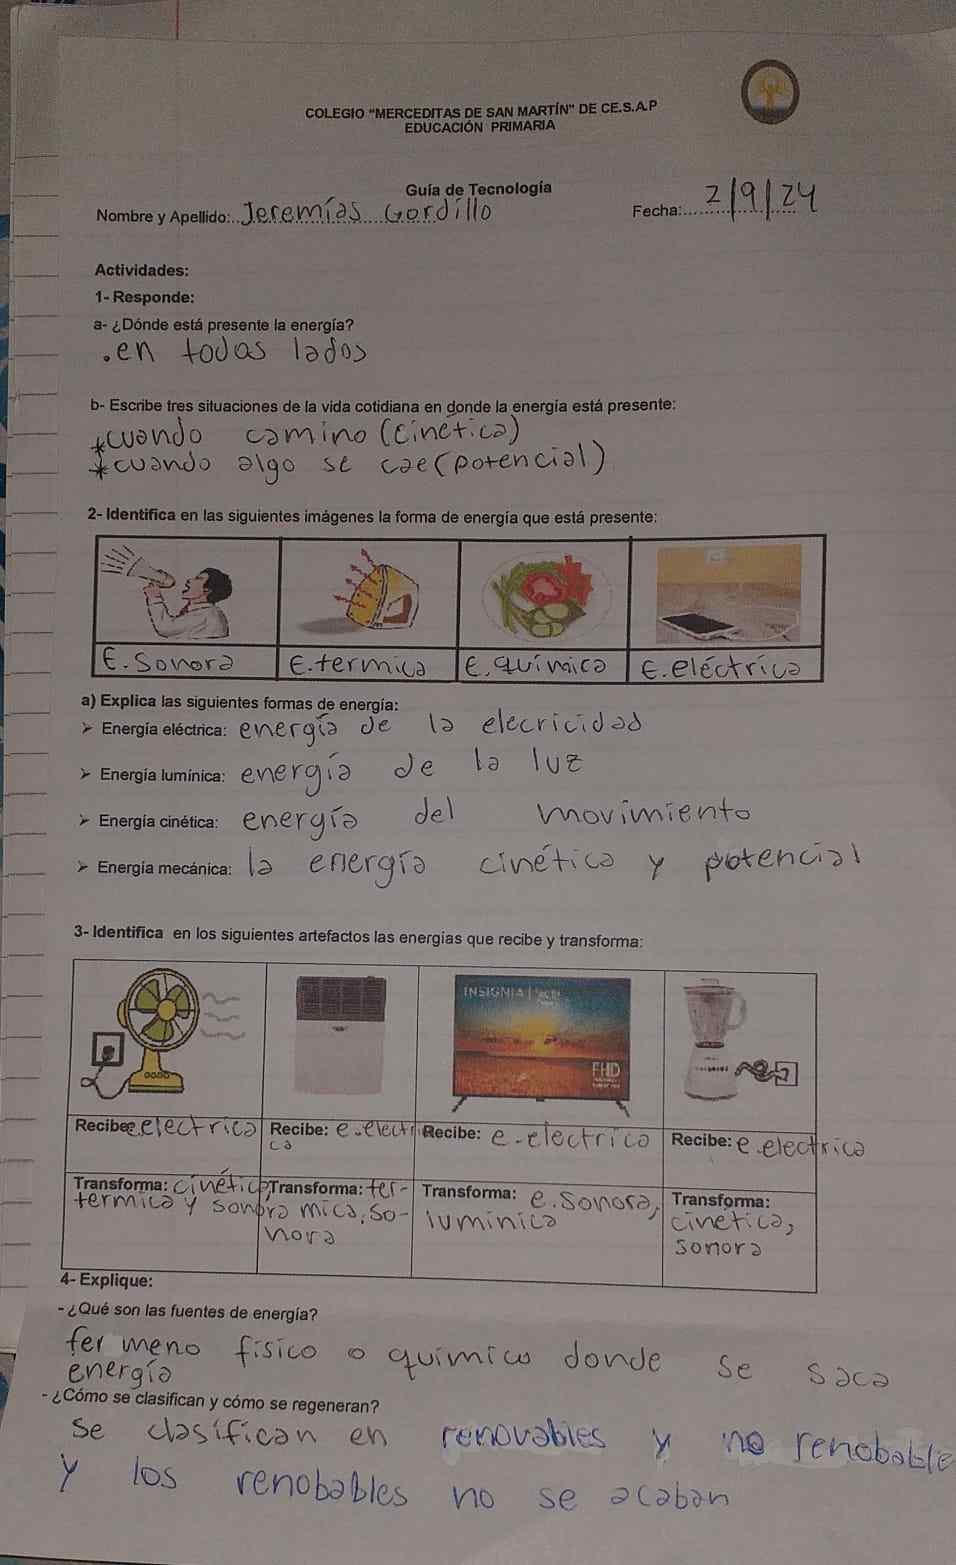 COLEGIO "MERCEDITAS DE SAN MARTÍN" DE CE.S.A.P
EDUCACIÓN PRIMARIA
Guía de Tecnología
Nombre y Apellido: Jeremías Gordillo Fecha: 2/9/24
Actividades:
1- Responde:
a- ¿Dónde está presente la energía?
.en todas lados
b- Escribe tres situaciones de la vida cotidiana en donde la energía está presente:
*cuando camino (cinética)
*cuando algo se cae (potencial)
2- Identifica en las siguientes imágenes la forma de energía que está presente:
E. Sonora E. termica E. química E. eléctrica
a) Explica las siguientes formas de energía:
➢ Energía eléctrica: energía de la elecricidad
➢ Energía lumínica: energía de la luz
➢ Energía cinética: energía del movimiento
➢ Energía mecánica: la energía cinética y potencial
3- Identifica en los siguientes artefactos las energías que recibe y transforma:
INSIGNIA
FHD
Recibe: e.electrica Recibe: e.electri Recibe: e-electrica Recibe: e.electrica
ca
Transforma: cinética, Transforma: ter- Transforma: e. Sonora, Transforma:
termica y sonora mica, so- luminica cinetica,
nora sonora
4- Explique:
- ¿Qué son las fuentes de energía?
fer meno físico o químico donde se saca
energía
- ¿Cómo se clasifican y cómo se regeneran?
Se clasifican en renovables y no renobable
y los renobables no se acaban